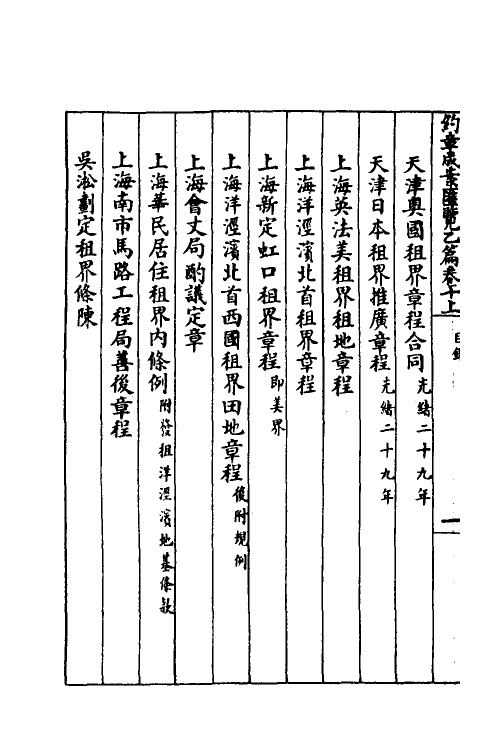 約章成案匯覽乙篇卷十上 目錄 一
天津奧國租界章程合同 光緒二十九年
天津日本租界推廣章程 光緒二十九年
上海英法美租界租地章程
上海洋涇濱北首租界章程
上海新定虹口租界章程 即美界
上海洋涇濱北首西國租界田地章程 後附規例
上海會丈局酌議定章
上海華民居住租界內條例 附發租洋涇濱地基條款
上海南市馬路工程局善後章程
吳淞劃定租界條陳